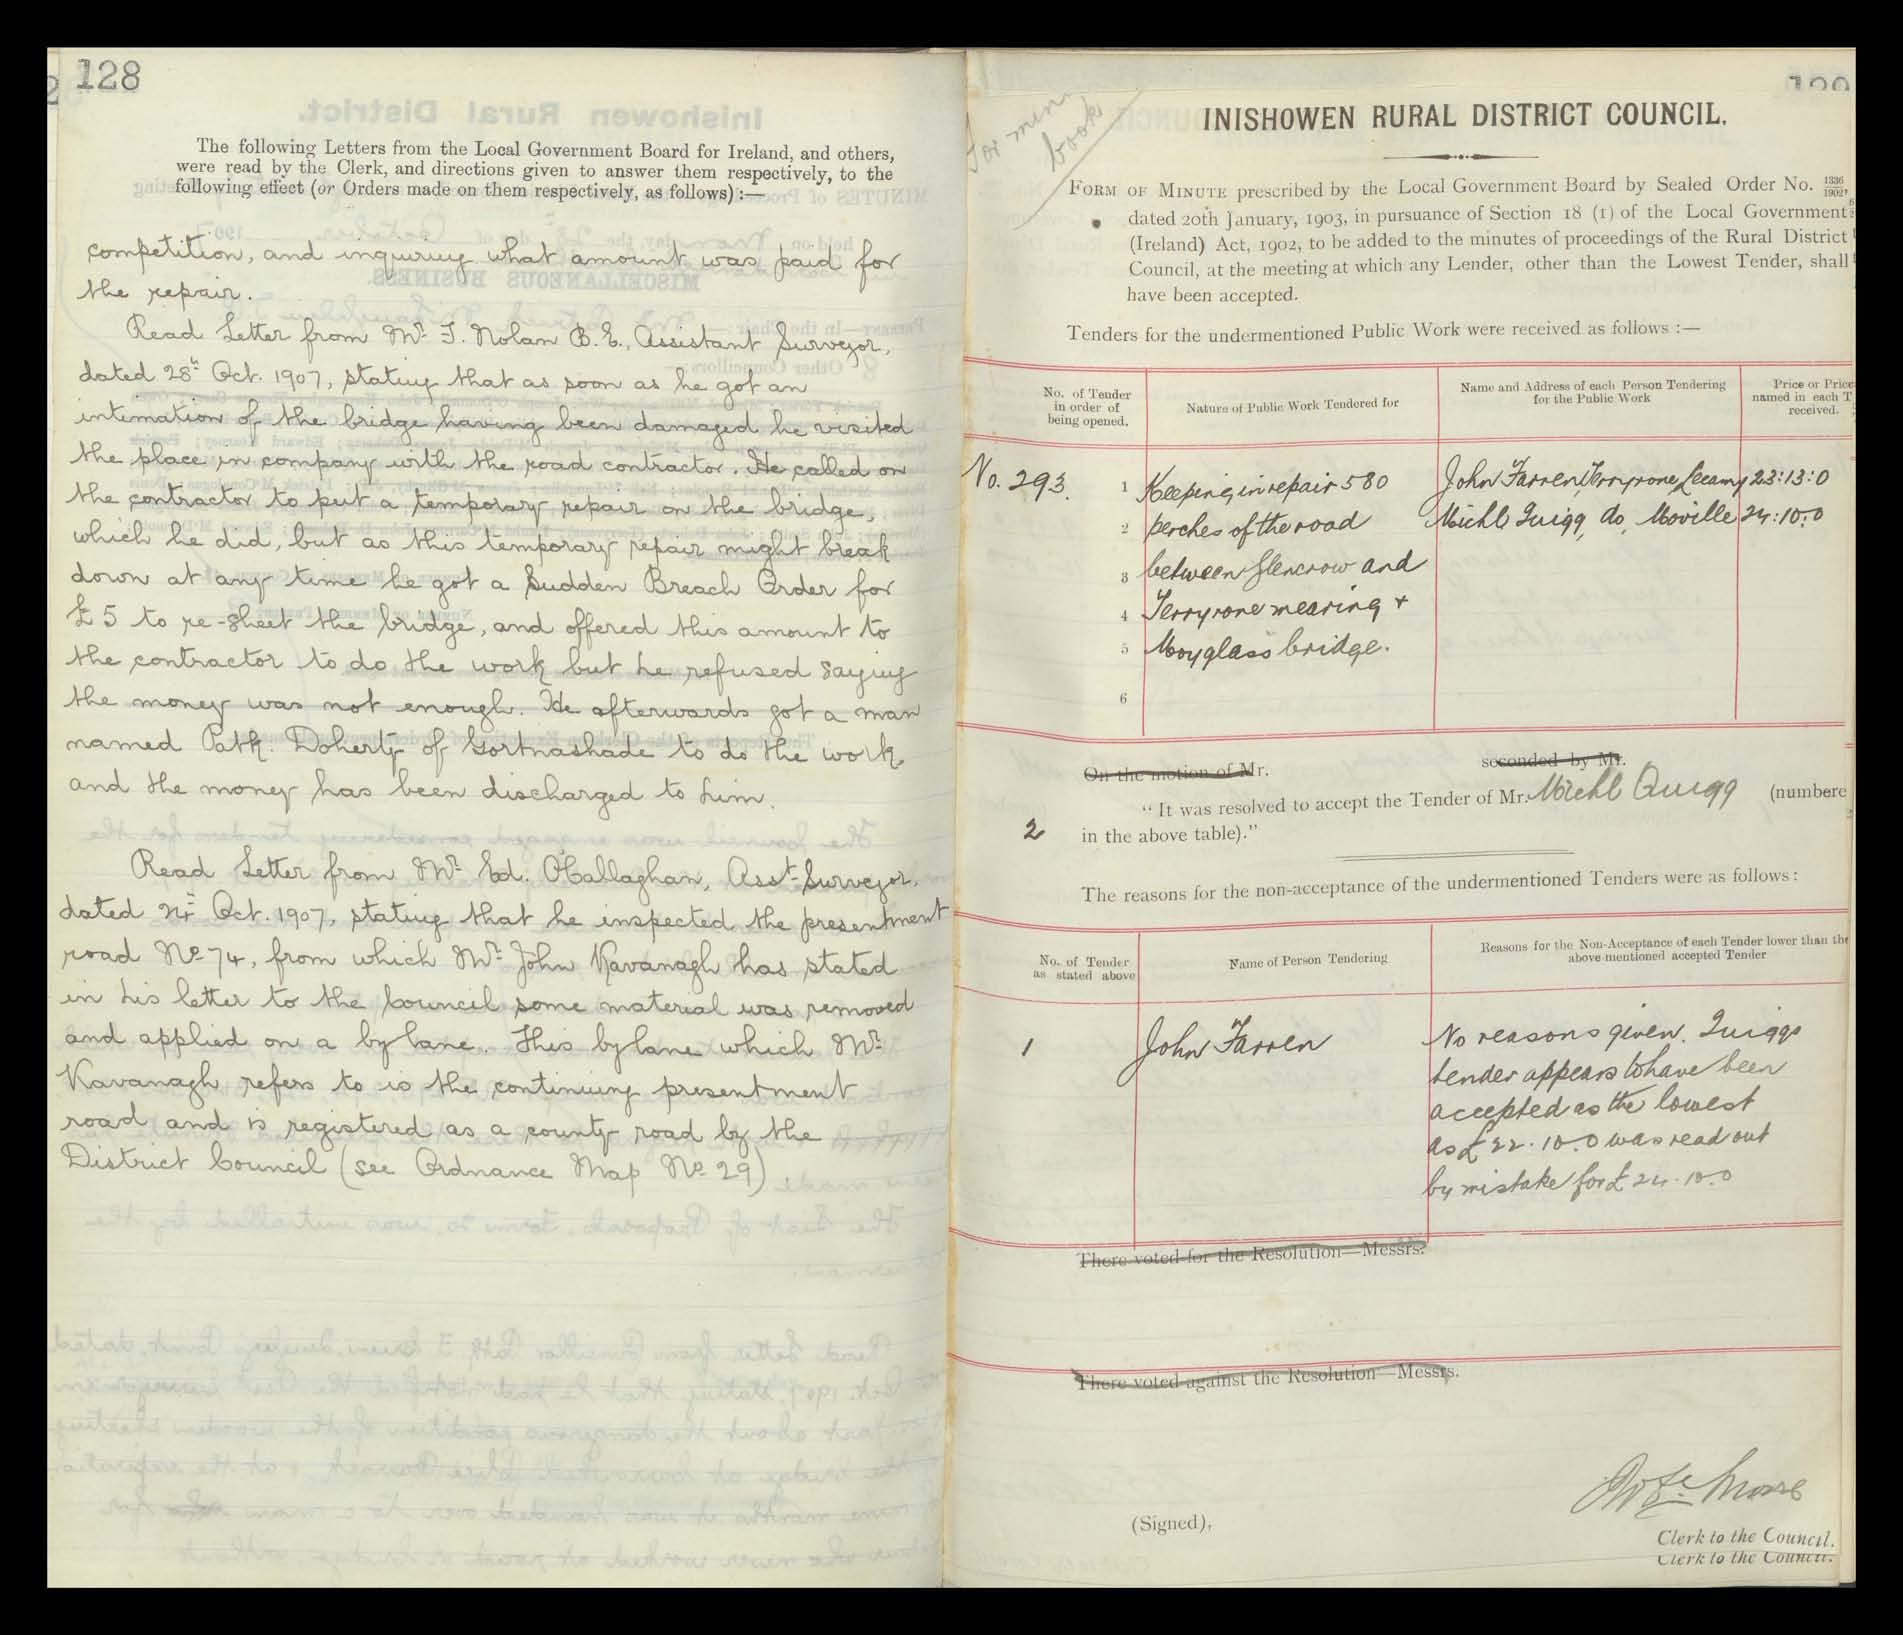 128
The following Letters from the Local Government Board for Ireland, and others,
were read by the Clerk, and directions given to answer them respectively, to the
following effect (or Orders made on them respectively, as follows) :—
competition, and inquiring what amount was paid for
the repair.
Read Letter from Mr. T. Nolan B.E., Assistant Surveyor,
dated 28th Oct. 1907, stating that as soon as he got an
intimation of the bridge having been damaged he visited
the place in company with the road contractor. He called on
the contractor to put a temporary repair on the bridge,
which he did, but as this temporary repair might break
down at any time he got a Sudden Breach Order for
£5 to re-sheet the bridge, and offered this amount to
the contractor to do the work but he refused saying
the money was not enough. He afterwards got a man
named Patk. Doherty of Gortnashade to do the work
and the money has been discharged to him.
Read Letter from Mr. Ed. O'Callaghan, Asst. Surveyor,
dated 24th Oct. 1907, stating that he inspected the presentment
road No. 74, from which Mr. John Kavanagh has stated
in his letter to the Council some material was removed
and applied on a bylane. This bylane which Mr.
Kavanagh refers to is the continuing presentment
road and is registered as a county road by the
District Council (see Ordnance Map No. 29)
For min.
book
INISHOWEN RURAL DISTRICT COUNCIL.
FORM OF MINUTE prescribed by the Local Government Board by Sealed Order No. 1336/1902,
dated 20th January, 1903, in pursuance of Section 18 (1) of the Local Government
(Ireland) Act, 1902, to be added to the minutes of proceedings of the Rural District
Council, at the meeting at which any Lender, other than the Lowest Tender, shall
have been accepted.
Tenders for the undermentioned Public Work were received as follows :—
No. of Tender
in order of
being opened.
Nature of Public Work Tendered for
Name and Address of each Person Tendering
for the Public Work
Price or Price
named in each T
received.
No. 293. 1 Keeping in repair 580 John Farren, Terryrone, Lecamy 23:13:0
2 perches of the road Michl Quigg, do, Moville 24:10:0
3 between Glencrow and
4 Terryrone mearing +
5 Moyglass bridge.
6
On the motion of Mr. seconded by Mr.
"It was resolved to accept the Tender of Mr. Michl Quigg (numbere
2 in the above table)."
The reasons for the non-acceptance of the undermentioned Tenders were as follows :
No. of Tender
as stated above
Name of Person Tendering
Reasons for the Non-Acceptance of each Tender lower than the
above-mentioned accepted Tender
1 John Farren No reasons given. Quiggs
tender appears to have been
accepted as the lowest
as £22.10.0 was read out
by mistake for £24.10.0
There voted for the Resolution—Messrs.
There voted against the Resolution—Messrs.
(Signed),
Clerk to the Council.
Clerk to the Council.